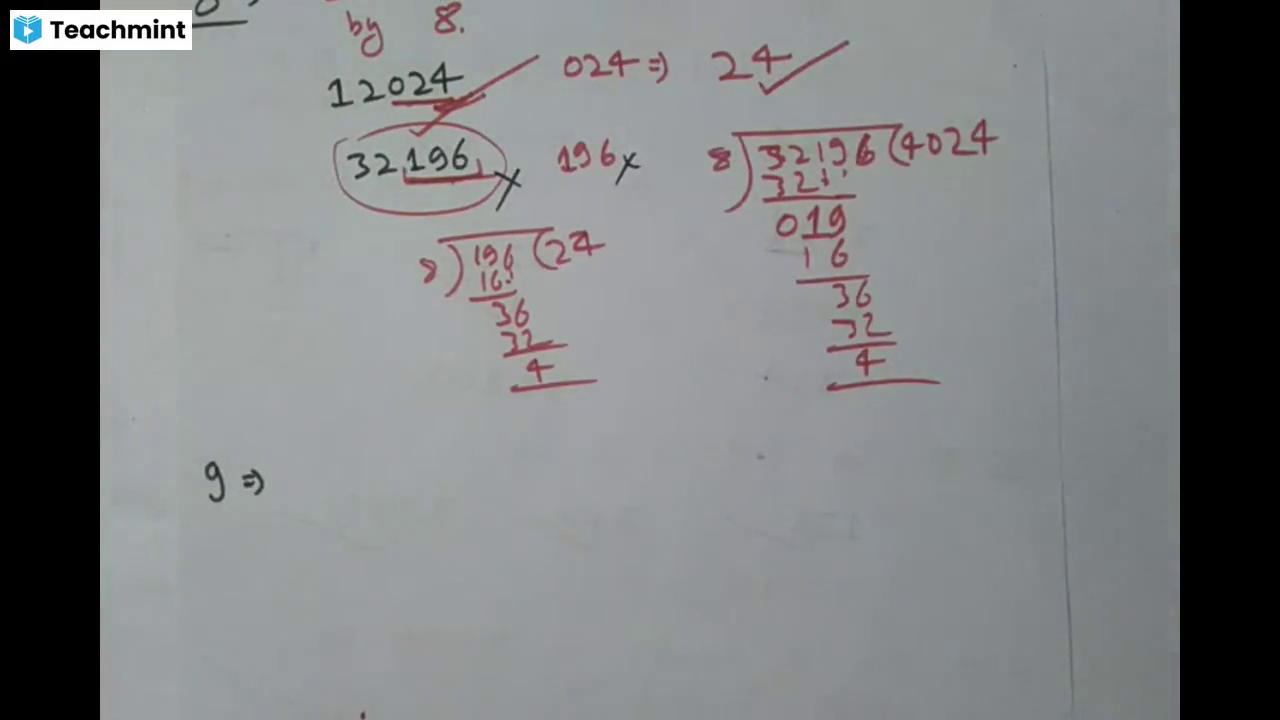 Teachmint
by 8.
12024 024 ⇒ 24
32196 196 × 8 ) 32196 ( 4024
32
019
16
36
32
4
8 ) 196 ( 24
16
36
32
4
9 ⇒